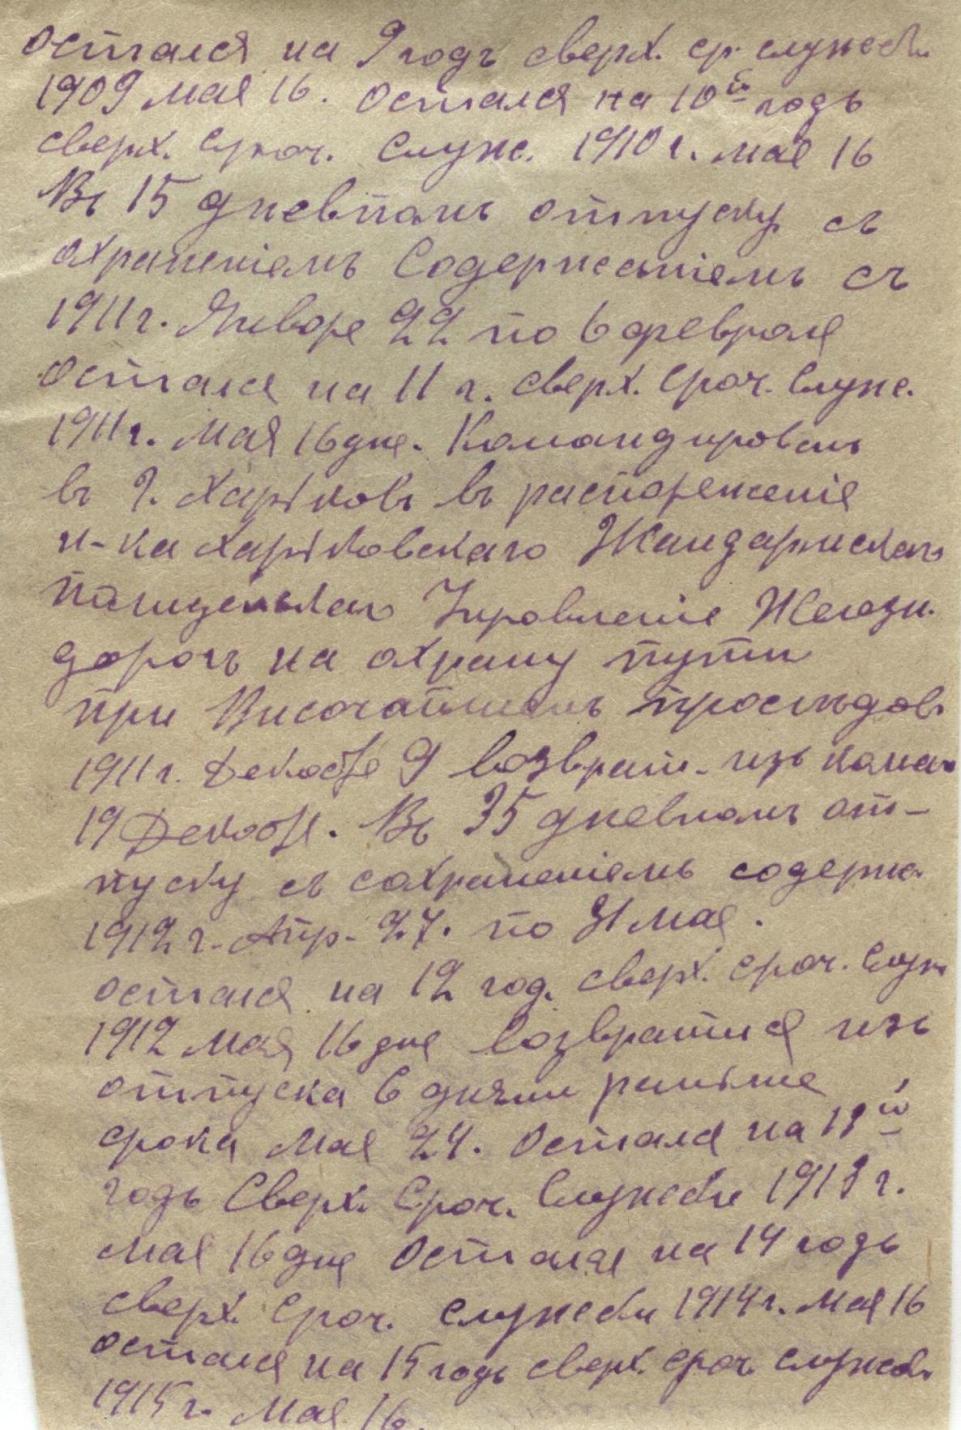 остался на 9 годъ сверх. ср. службы
1909 мая 16. Остался на 10й годъ
сверх. сроч. служ. 1910 г. мая 16
Въ 15 дневномъ отпуску съ
охраненіемъ Содержаніемъ съ
1911 г. Января 22 по 6 февраля
Остался на 11 г. сверх. сроч. служ.
1911 г. Мая 16 дня. Командированъ
въ г. Харьковъ въ распоряженіе
н-ка Харьковскаго Жандармскаго
полицейскаго Управленіе Железн.
дорогъ на охрану пути
при Височайшемъ проследов.
1911 г. Декабря 9 возврат. изъ коман
19 Декабр. Въ 35 дневномъ от-
пуску съ сохраненіемъ содерж.
1912 г. Апр. 27. по 31 мая.
остался на 12 год. сверх. сроч. служ
1912 мая 16 дня возвратился изъ
отпуска 6 днями раньше
срока мая 24. Остался на 13й
годъ Сверх. Сроч. Службы 1913 г.
мая 16 дня Остался на 14 годъ
сверх. сроч. службы 1914 г. мая 16
остался на 15 годъ сверх. сроч службы
1915 г. мая 16.